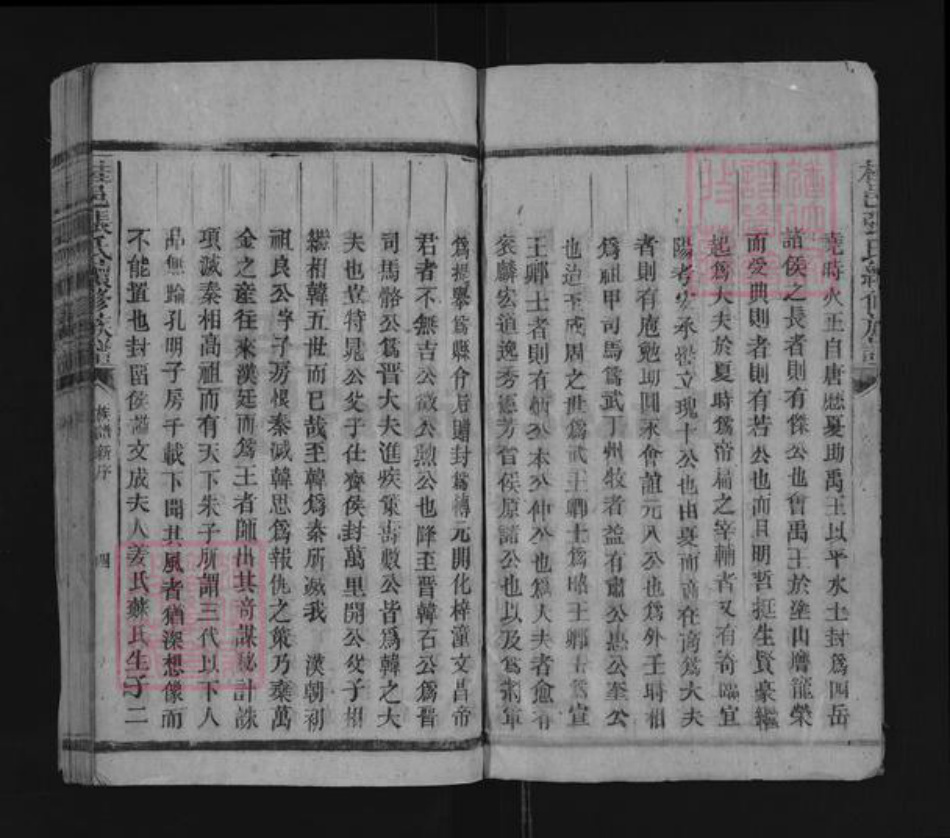 堯時火正自唐歷夏助禹王以平水土封為四岳
諸侯之長者則有傑公也會禹王於塗山膺寵榮
而受典則者則有若公也而且明哲挺生賢豪繼
起為大夫於夏時為帝扃之宰輔者又有奇臨宜
陽考安承懋立瑰十公也由夏而商在商為大夫
者則有庵勉助圓永會誼元八公也為外壬時相
為祖甲司馬為武丁州牧者益有肅公惠公奎公
也迨至成周之世為武王卿士為昭王卿士為宣
王卿士者則有 公本公仲公也為大夫者愈有
衮麟宏道逸秀 芳官侯原諸公也以及為制軍
為提舉為縣令 贈封為轉元開化梓潼文昌帝
君者不無吉公微公勲公也降至晉韓石公為晉
司馬骼公為晉大夫進疾 公皆為韓之大
夫也豈特晁公父子仕齊侯封萬里開公父子相
繼相韓五世而已哉至韓為秦所滅我 漢朝初
祖良公字子房恨秦滅韓思為報仇之策乃棄萬
金之產往來漢廷而為王者師出其奇謀秘計誅
項滅秦相高祖而有天下朱子所謂三代以下人
品無踰孔明子房千載下聞其風者猶深想像而
不能置也封留侯諡文成夫人姜氏蔡氏生子二
桂邑張氏續修族譜
族譜新序
四